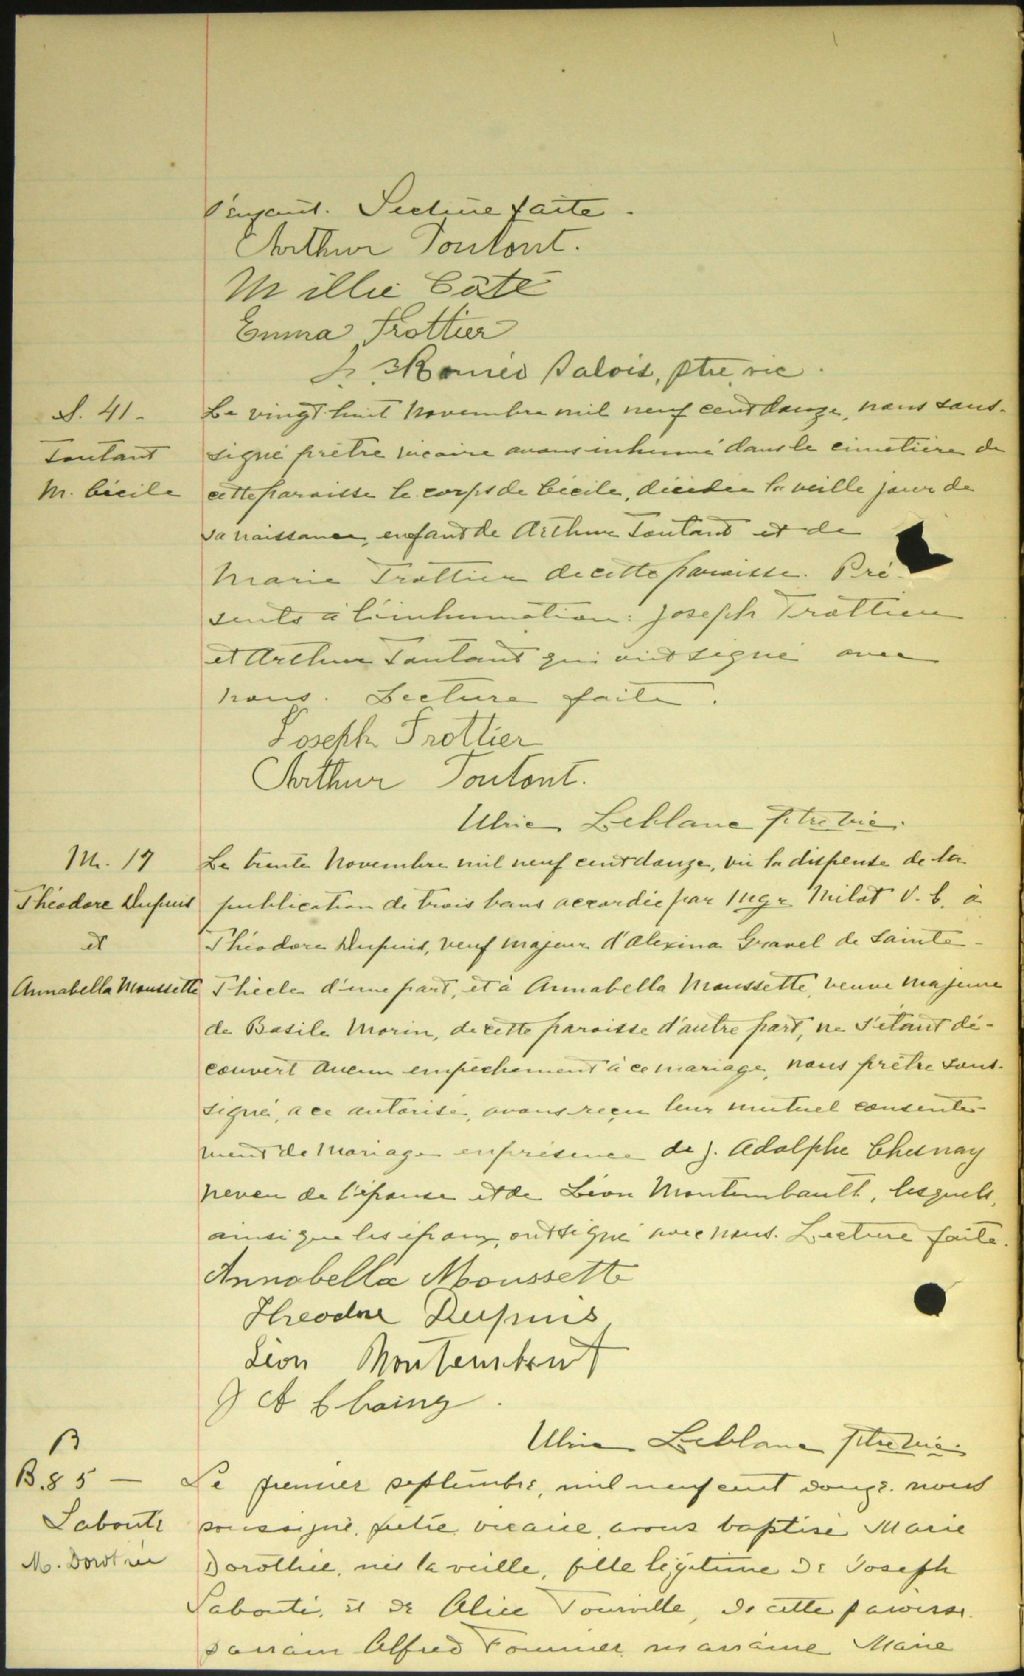 l'enfant. Lecture faite.
Arthur Toutant.
Millie Côté
Emma Trottier
Roméo Salois, ptre vic.
S. 41 -
Toutant
M. Cécile
Le vingt huit novembre mil neuf cent douze, nous sous-
signé prêtre vicaire avons inhumé dans le cimetière de
cette paroisse le corps de Cécile, décédée la veille jour de
sa naissance, enfant de Arthur Toutant et de
Marie Trottier de cette paroisse. Pré-
sents à l'inhumation: Joseph Trottier
et Arthur Toutant qui ont signé avec
nous. Lecture faite.
Joseph Trottier
Arthur Toutant.
Ulric Leblanc ptre vic.
M. 17
Théodore Dupuis
et
Annabella Moussette
Le trente novembre mil neuf cent douze, vu la dispense de la
publication de trois bans accordée par Mgr Milot V. G. à
Théodore Dupuis, veuf majeur d'Alexina Gravel de Sainte-
Thècle d'une part, et à Annabella Moussette, veuve majeure
de Basile Morin, de cette paroisse d'autre part, ne s'étant dé-
couvert aucun empêchement à ce mariage, nous prêtre sous-
signé, a ce autorisé, avons reçu leur mutuel consente-
ment de mariage en présence de J. Adolphe Chesnay
neveu de l'épouse et de Léon Montembault, lesquels,
ainsi que les époux, ont signé avec nous. Lecture faite.
Annabella Moussette
Theodore Dupuis
Léon Montembault
J A
Ulric Leblanc ptre vic.
B
B. 85 —
Labonté
M. Dorothée
Le premier septembre, mil neuf cent douze. nous
soussigné, prêtre vicaire, avons baptisé Marie
Dorothée, née la veille, fille légitime de Joseph
Labonté, et de Alice Tourville, de cette paroisse.
parrain Alfred Fournier, marraine Marie